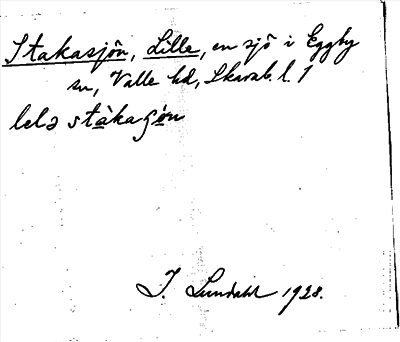 Stakasjön, Lille, en sjö i Eggby
sn, Valle hd, Skarab. l. 1
lelə stàkaʂön
I. Lundahl 1928.